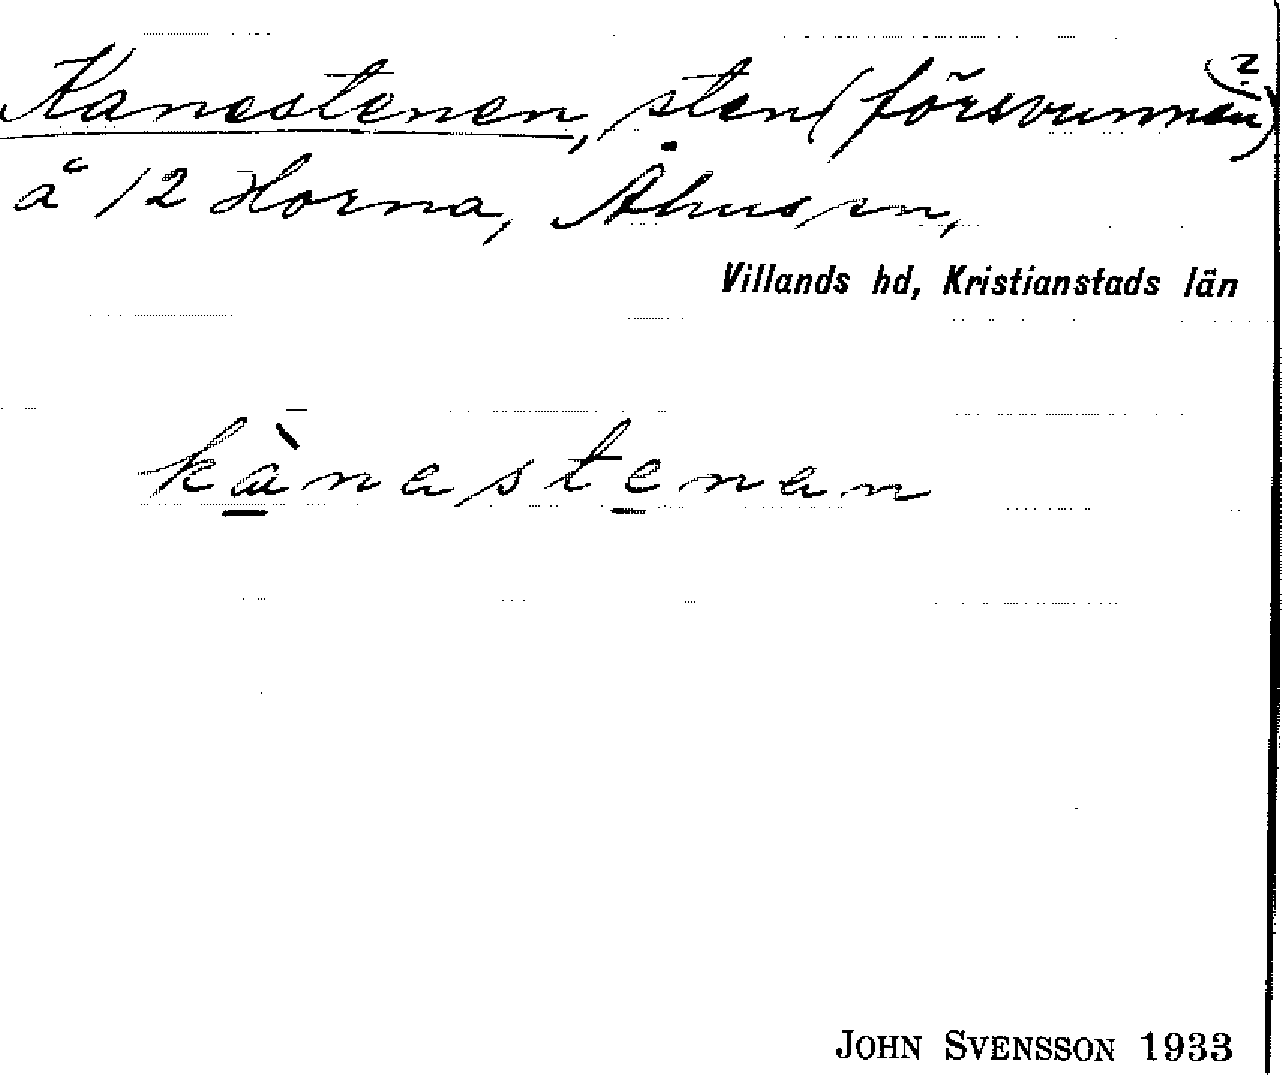 Kanestenen, sten (försvunnen (?))
å 12 Horna, Åhus sn,
Villands hd, Kristianstads län
kànastenan
JOHN SVENSSON 1933